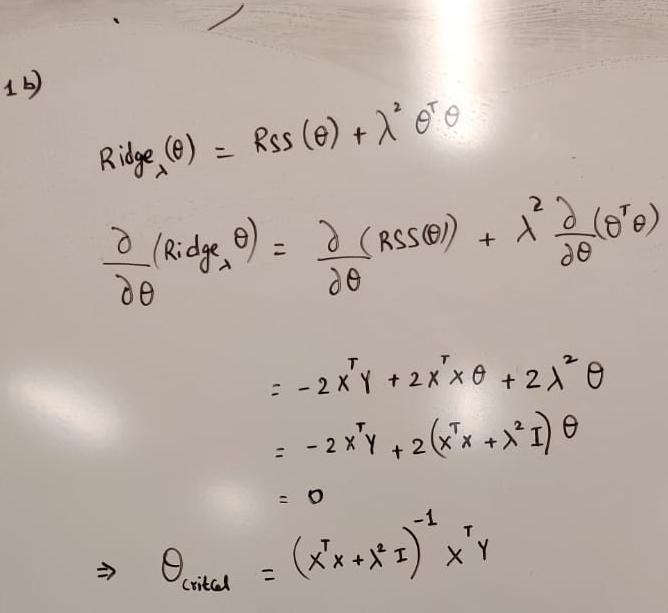 1b)
Ridge_λ(θ) = Rss(θ) + λ² θᵀθ
∂/∂θ (Ridge_λ θ) = ∂/∂θ (RSS(θ)) + λ² ∂/∂θ (θᵀθ)
= -2xᵀY + 2xᵀxθ + 2λ²θ
= -2xᵀY + 2(xᵀx + λ²I)θ
= 0
⇒ θ_critcal = (xᵀx + λ²I)⁻¹ xᵀY